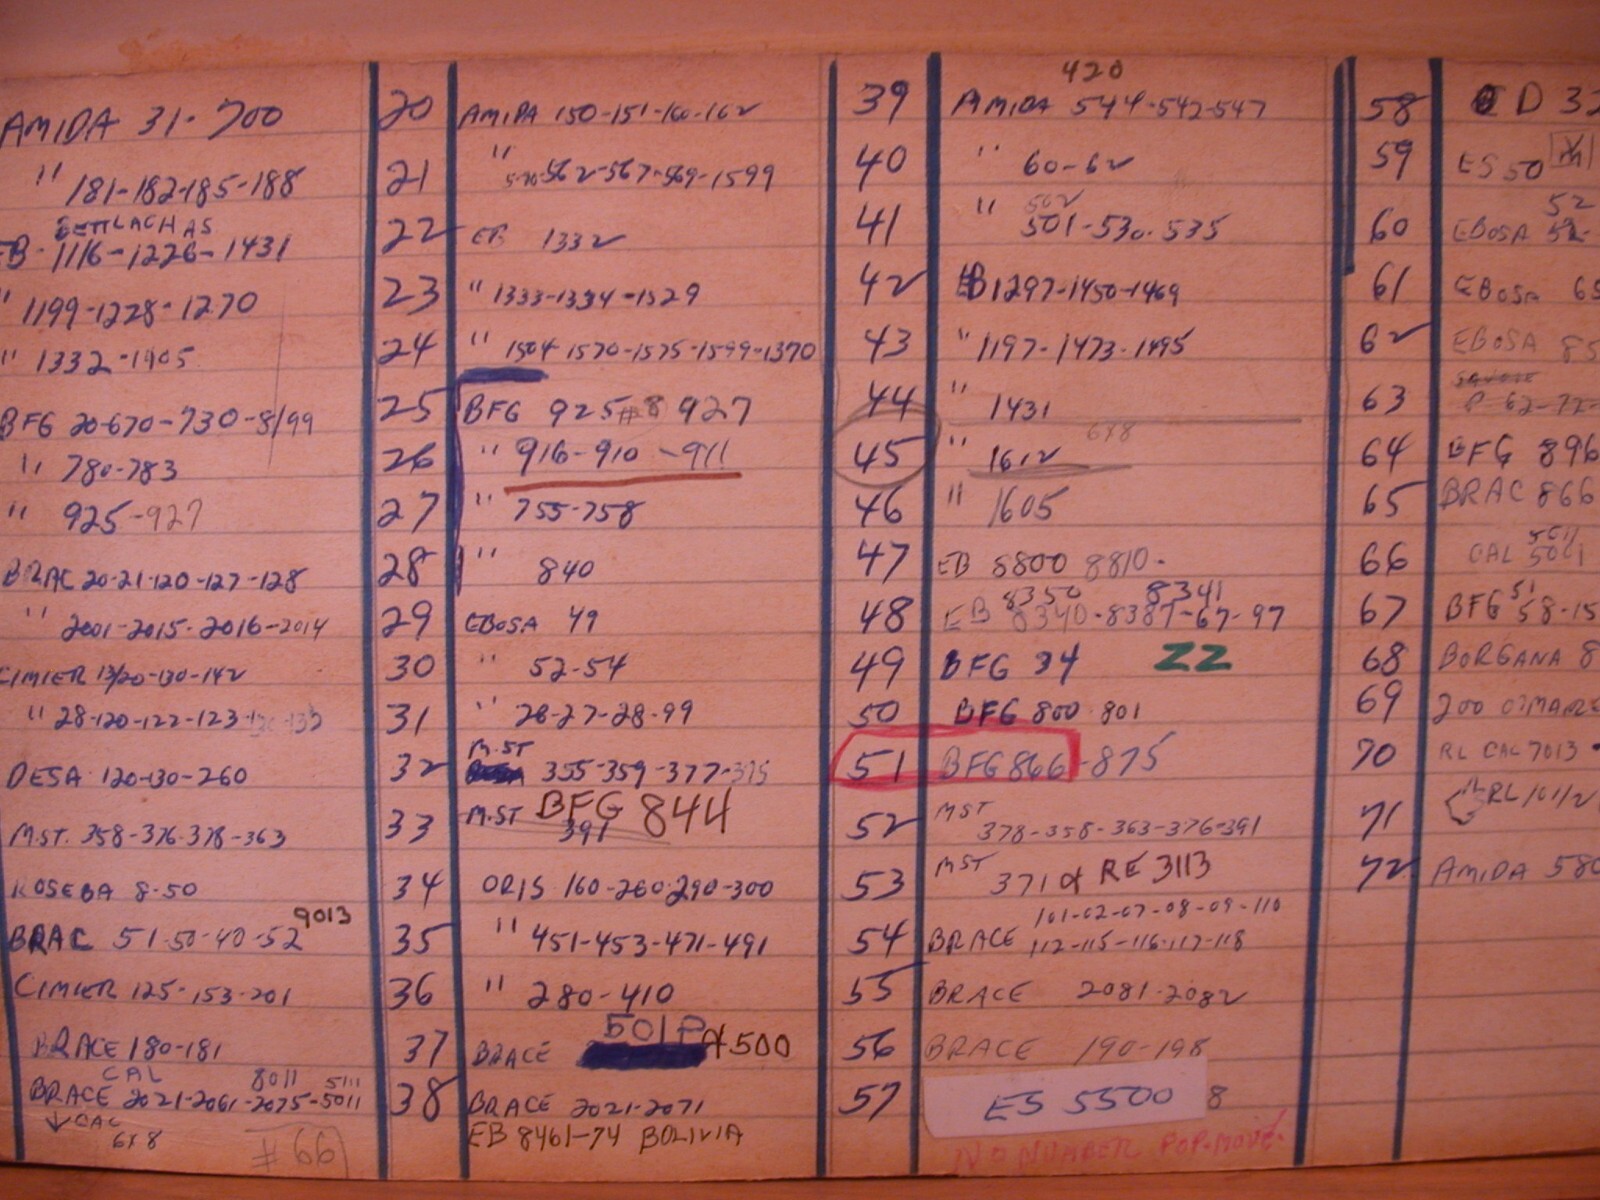 AMIDA 31-700
" 181-182-185-188
BETTLACH AS
EB-1116-1226-1431
" 1199-1228-1270
" 1332-1405
BFG 20-670-730-8/99
" 780-783
" 925-927
BRAC 20-21-120-127-128
" 2001-2015-2016-2014
CIMIER 13/20-130-142
" 28-120-122-123
DESA 120-130-260
M.ST. 358-376-378-363
ROSEBA 8-50
9013
BRAC 51-50-40-52
CIMIER 125-153-201
BRACE 180-181
CAL 8011 5111
BRACE 2021-2061-2075-5011
↓ CAL
6x8
#66
20 AMIDA 150-151-160-162
21 " 562-567-569-1599
22 EB 1332
23 " 1333-1334-1329
24 " 1504 1570-1575-1599-1370
25 BFG 925 #8 927
26 " 916-910-911
27 " 755-758
28 " 840
29 EBOSA 49
30 " 52-54
31 " 26-27-28-99
32 M.ST 355-359-377-375
33 M.ST BFG 844
391
34 ORIS 160-260-290-300
35 " 451-453-471-491
36 " 280-410
501P
37 BRACE & 500
38 BRACE 2021-2071
EB 8461-74 BOLIVIA
420
39 AMIDA 544-542-547
40 " 60-62
502
41 " 501-530-535
42 EB 1297-1450-1469
43 " 1197-1473-1495
44 " 1431
6x8
45 " 1612
46 " 1605
47 EB 8800 8810-
8350 8341
48 EB 8340-8387-67-97
49 BFG 34 ZZ
50 BFG 800-801
51 BFG 866-875
52 MST 378-358-363-376-391
53 MST 371 & RE 3113
101-02-07-08-09-110
54 BRACE 112-115-116-117-118
55 BRACE 2081-2082
56 BRACE 190-198
57 ES 5500 8
NO NUMBER POP-MOVE.
58 D 32
59 ES 50
52
60 EBOSA 52-
61 EBOSA 65
62 EBOSA 85
63 P 62-72-
64 BFG 896
65 BRAC 866
5011
66 CAL 5001
51
67 BFG 58-15
68 BORGANA 8
69 200
70 RL CAL 7013
71 RL 101/2
72 AMIDA 580